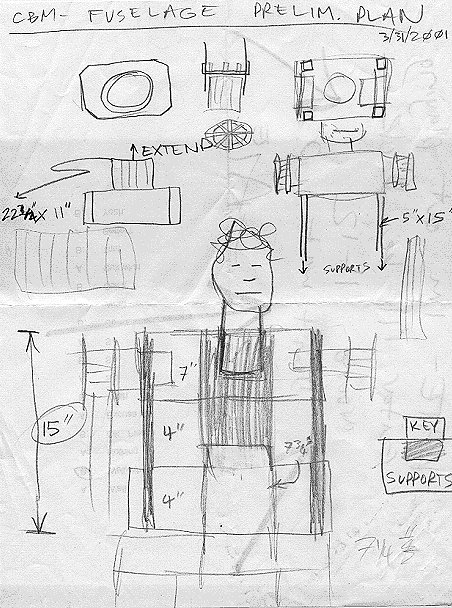 CBM- FUSELAGE PRELIM. PLAN
3/31/2001
EXTEND
22 3/4" X 11"
5" X 15"
SUPPORTS
7"
15"
4"
7 3/4"
4"
KEY
SUPPORTS